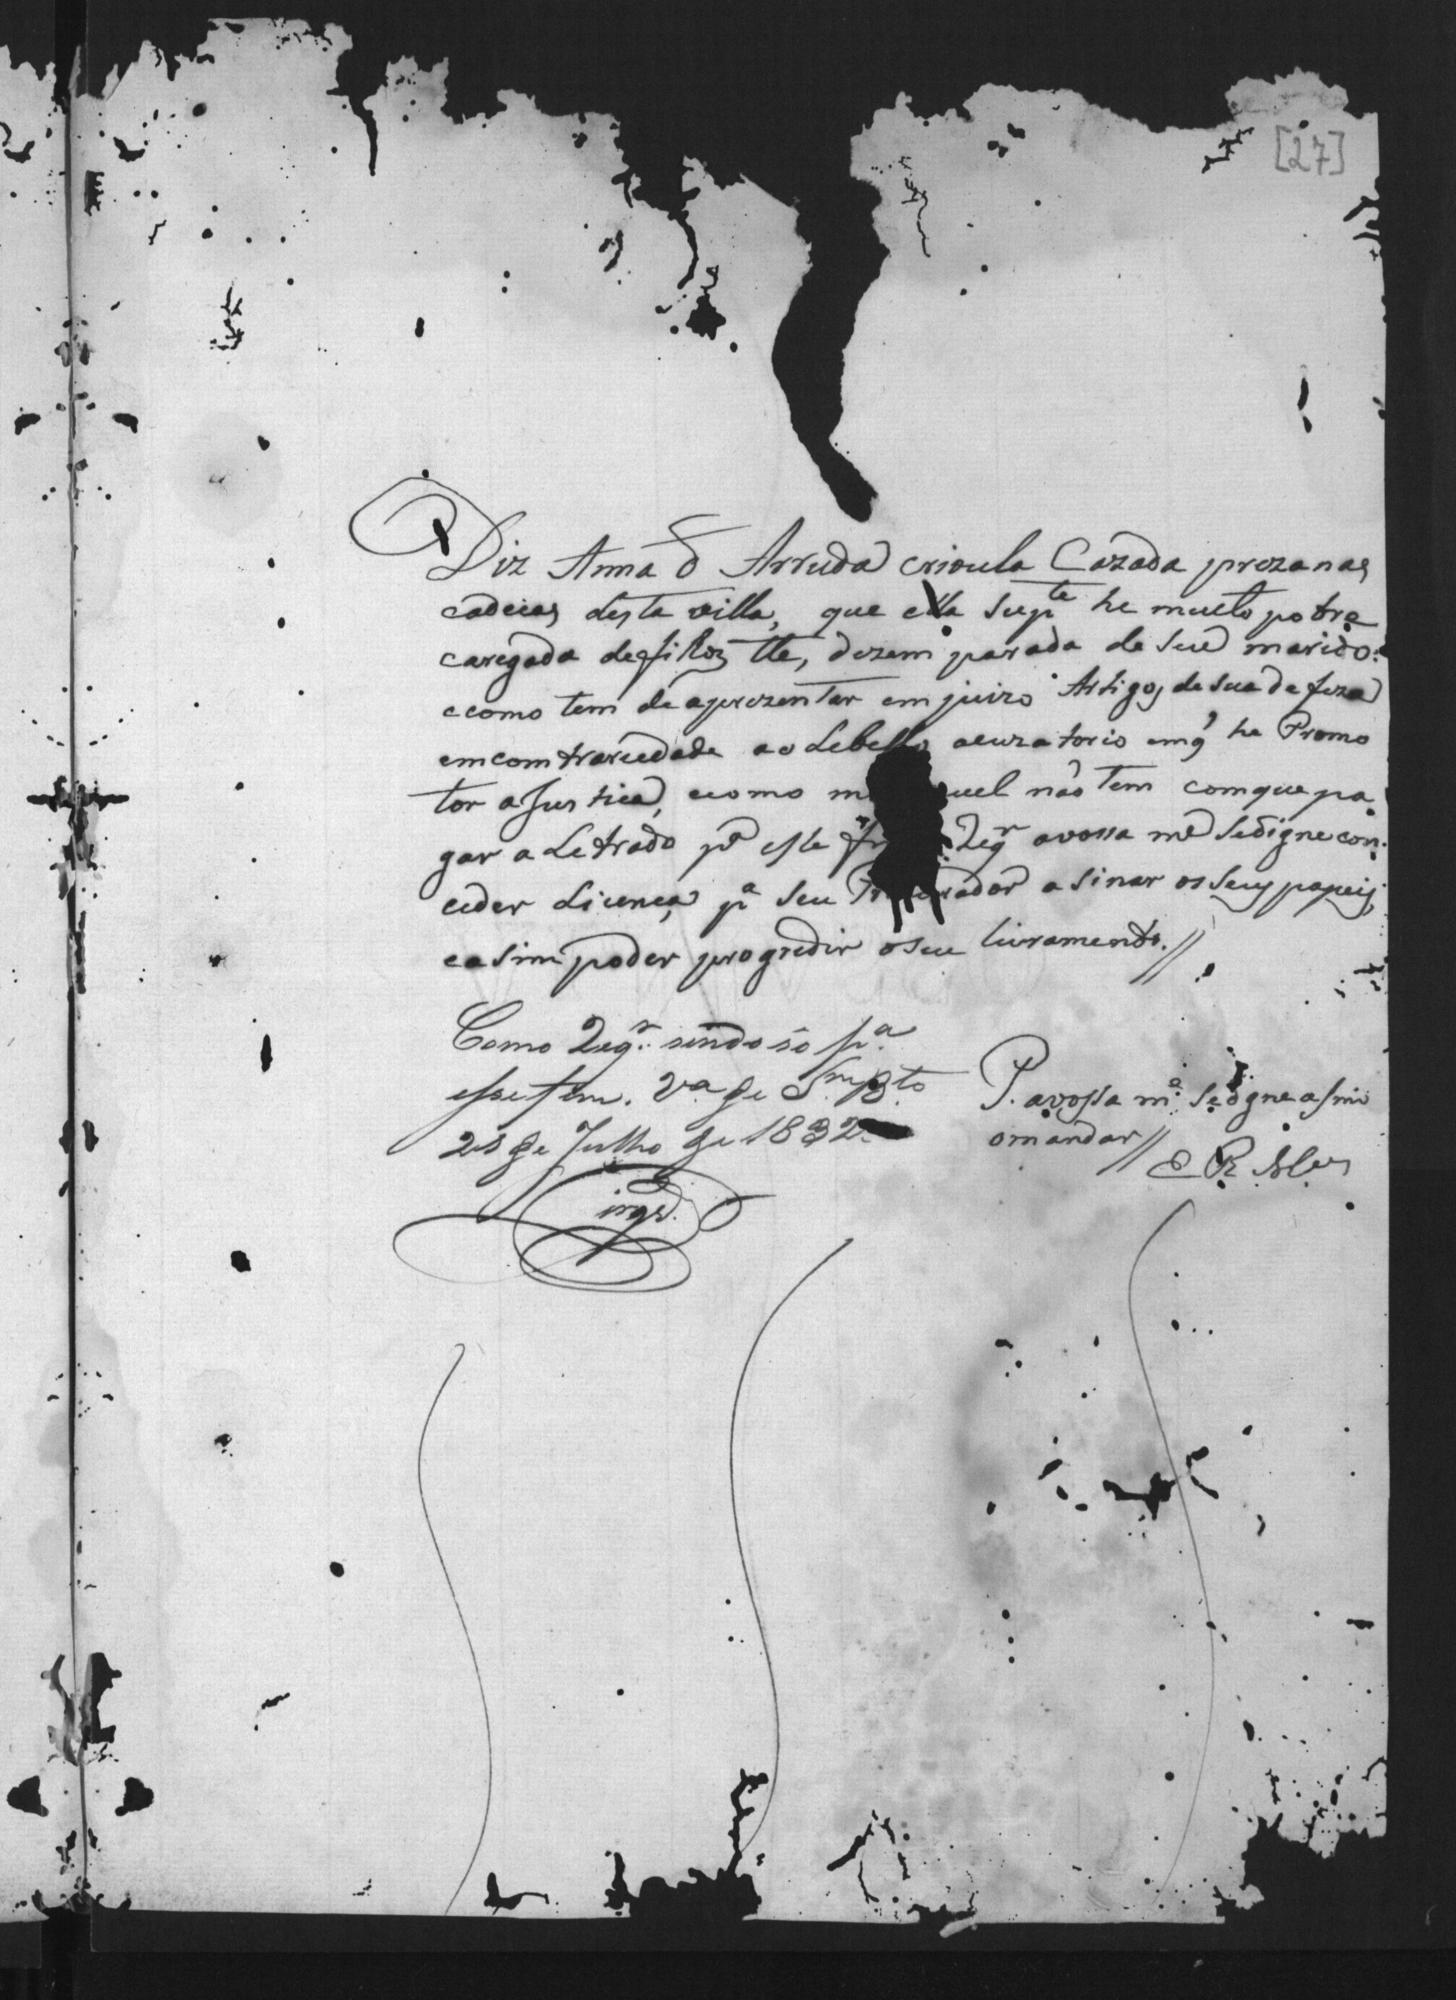 [27]
Diz Anna d Arruda crioula Cazada prezanas
cadeias desta villa, que ella Supte he muito pobre
caregada defilhoz dezemparada de seu marido:
ecomo tem de aprezentar emjuizo Artigos de sua defeza
emcomtrariedade ao Lebello acuzatorio emq he Promo
tor aJustica, ecomo m uel não tem comque pa
gar a Letrado pa este Reqr avossa me sedigne con
ceder Licença pa seu Procurador asinar osseus papeis,
easim poder progredir oseu livramento.//
Como Reqr. sendo só pa.
esse fim. Va de
21 de Julho de 1832.
P. avossa me. sedigne asim
omandar//
E R Mce